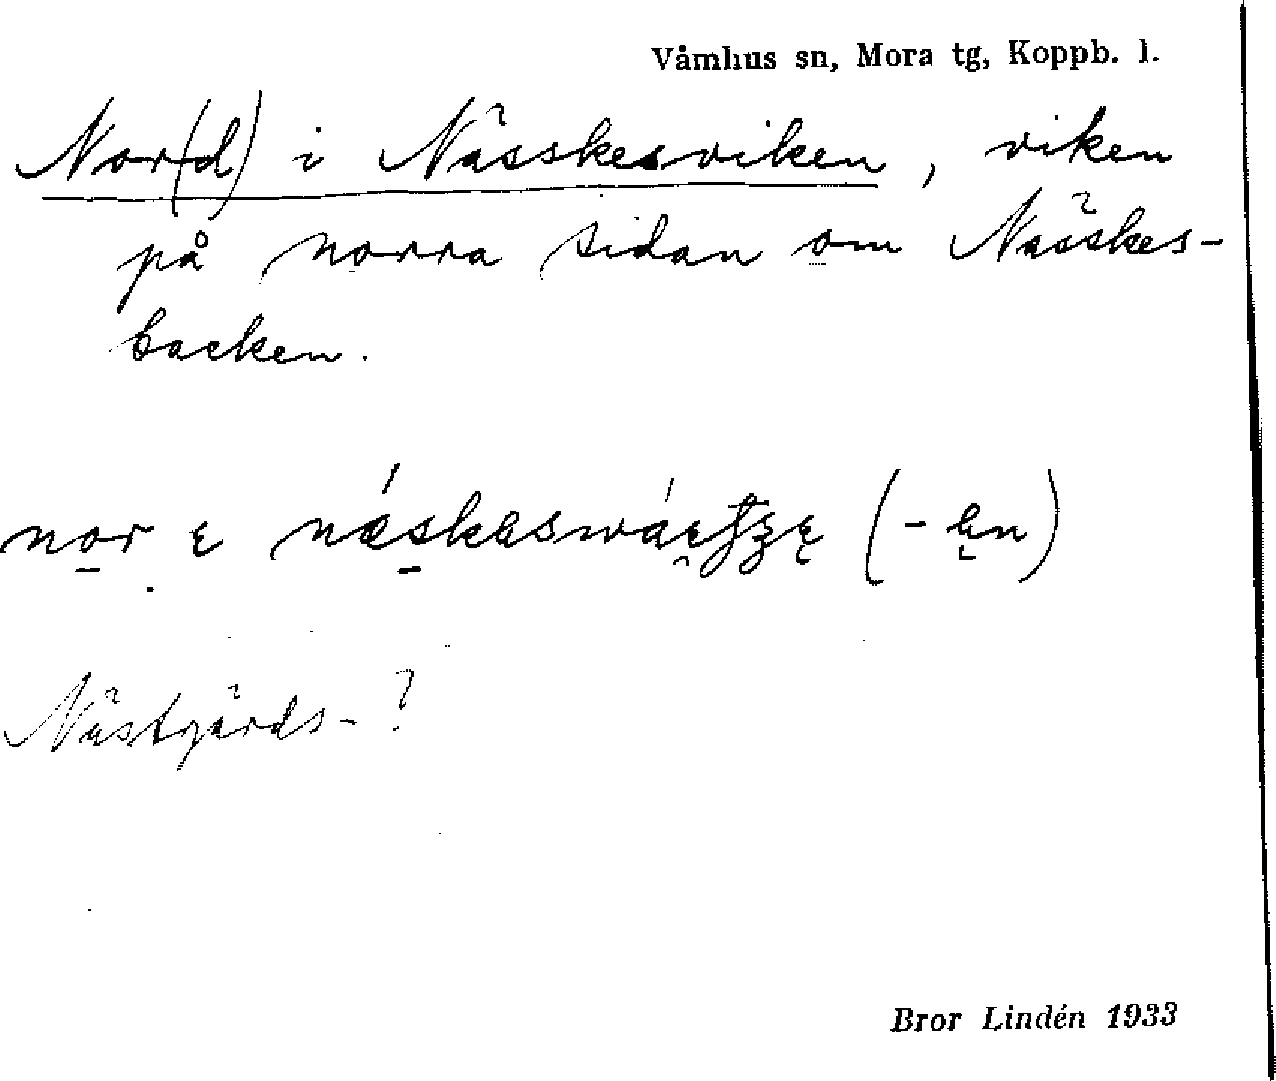 Våmhus sn, Mora tg, Koppb. l.
Nor(d) i Nässkesviken, viken
på norra sidan om Nässkes-
backen.
nor
(-en)
Nästgärds-?
Bror Lindén 1933